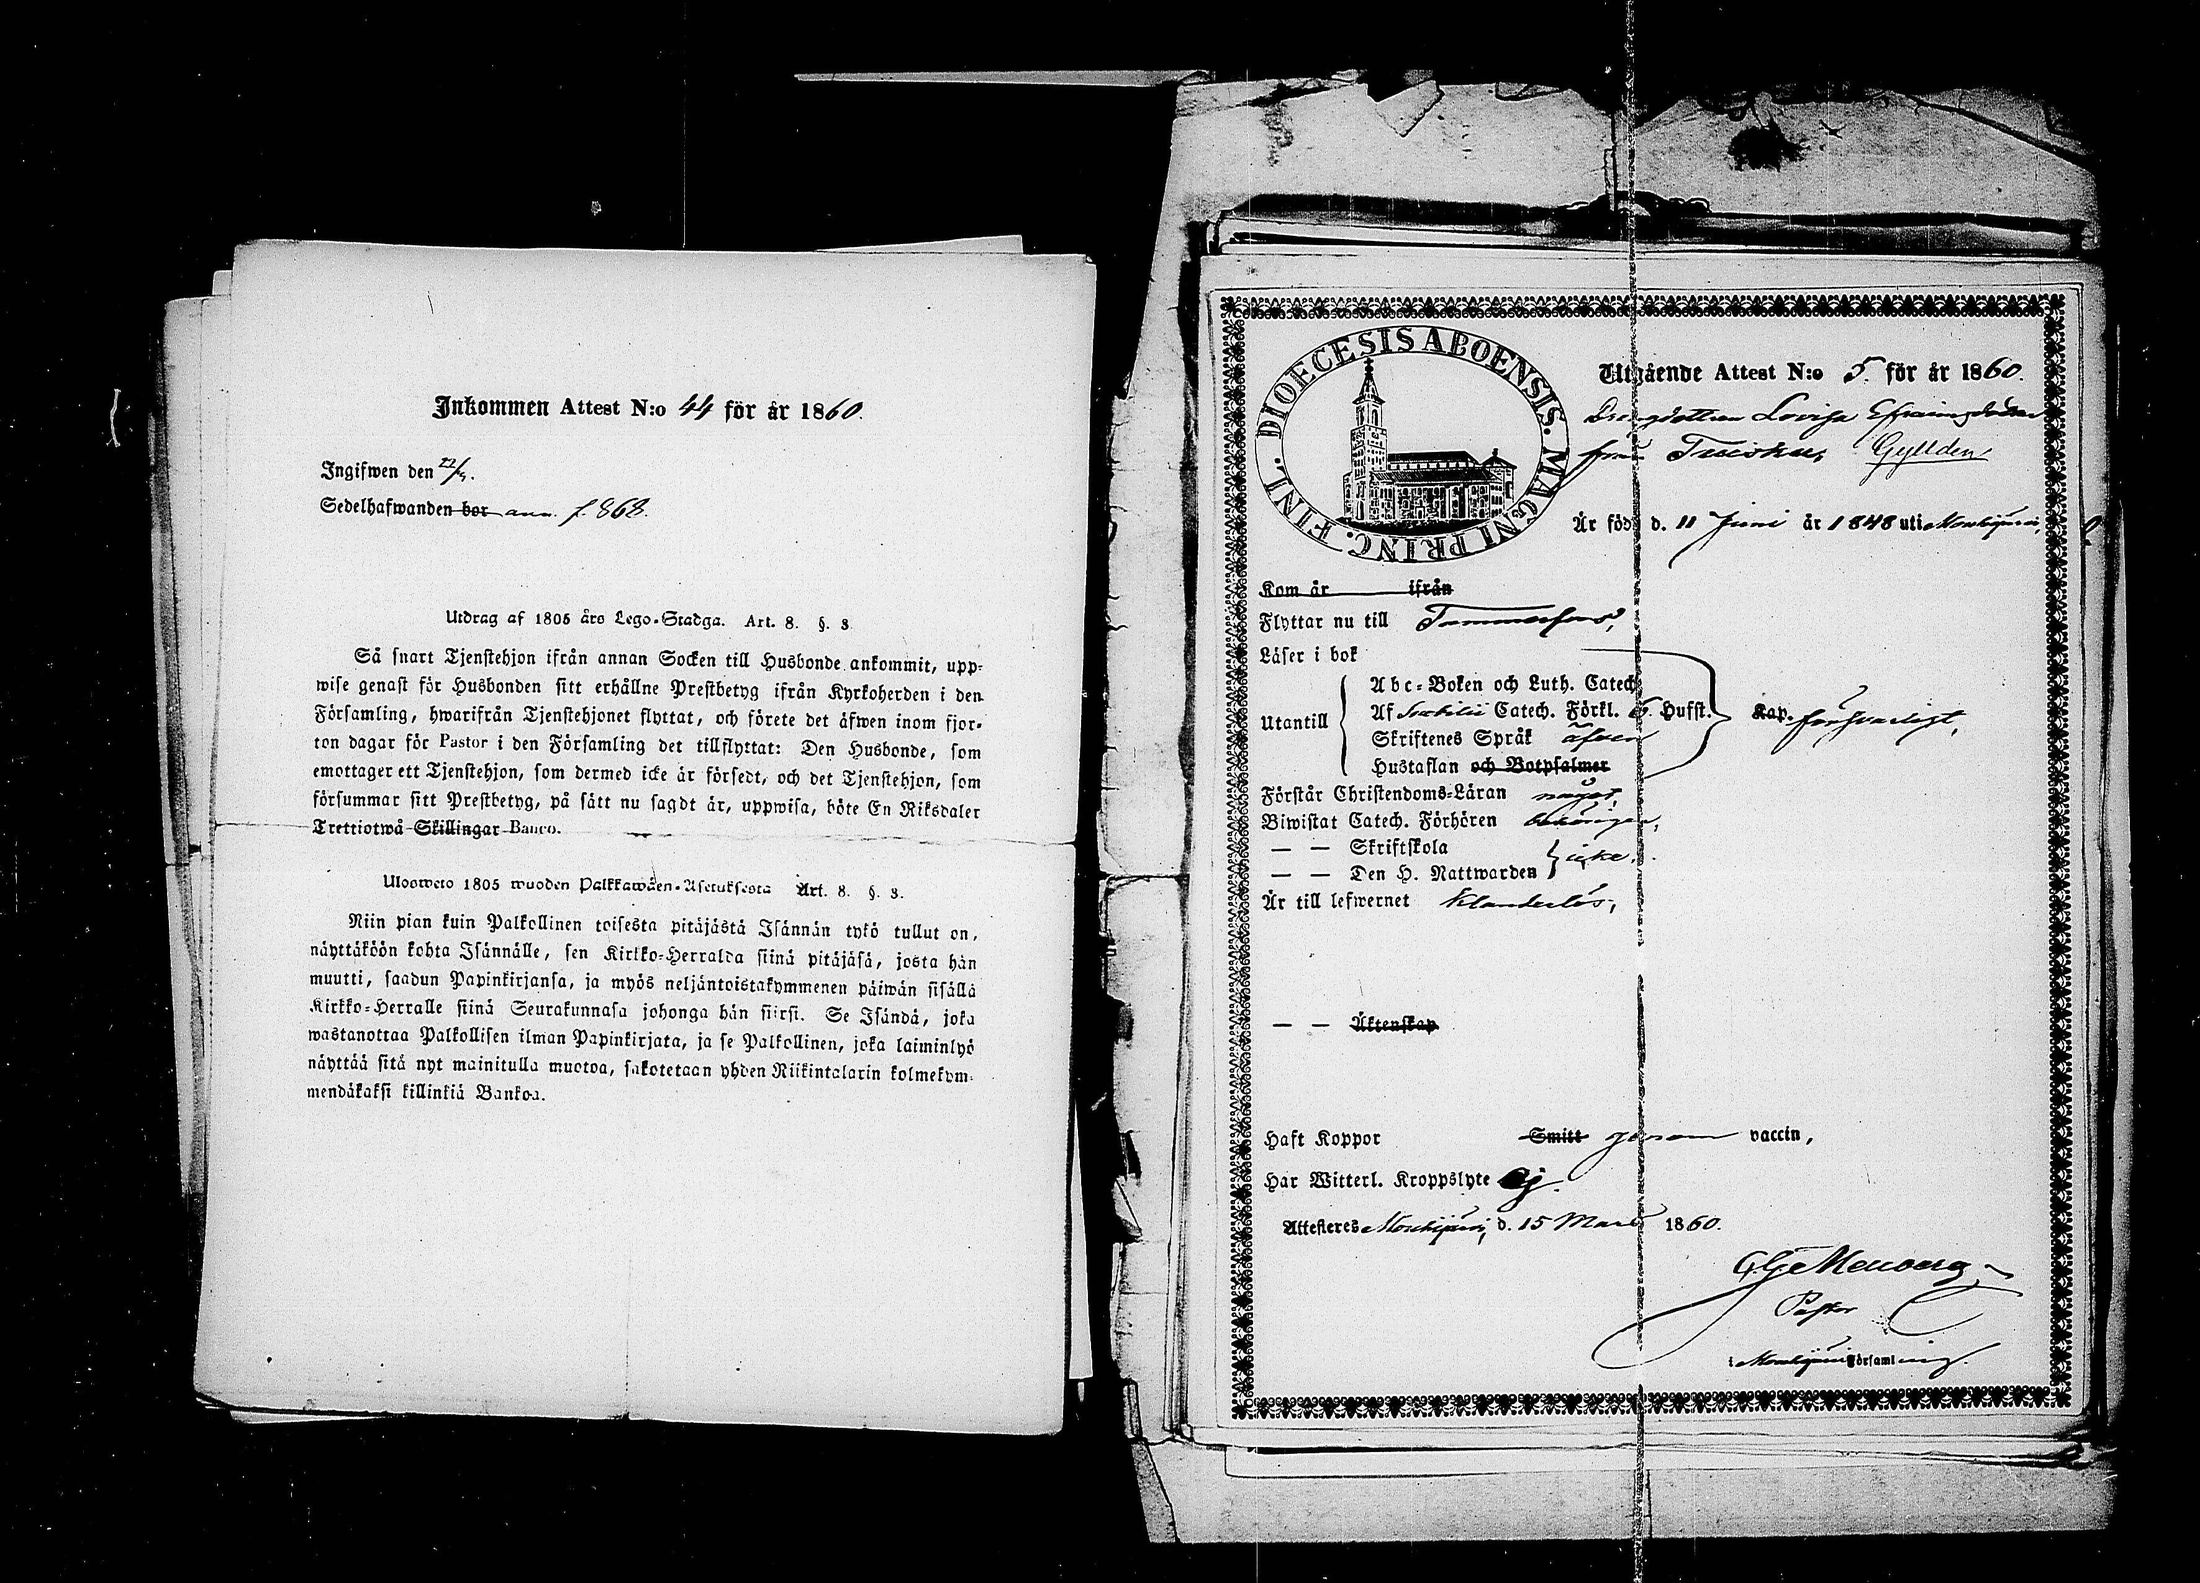 Inkommen Attest N:o 44 för år 1860.
Ingifwen den 22/3.
Sedelhafwanden bor ann. f. 868.
Utdrag af 1805 års Lego-Stadga. Art. 8. §. 8
Så snart Tjenstehjon ifrån annan Socken till Husbonde ankommit, upp-
wise genast för Husbonden sitt erhållne Prestbetyg ifrån Kyrkoherden i den
Församling, hwarifrån Tjenstehjonet flyttat, och förete det äfwen inom fjor-
ton dagar för Pastor i den Församling det tillflyttat: Den Husbonde, som
emottager ett Tjenstehjon, som dermed icke är försedt, och det Tjenstehjon, som
försummar sitt Prestbetyg, på sätt nu sagdt är, uppwisa, böte En Riksdaler
Trettiotwå Skillingar Banco.
Ulosweto 1805 wuoden Palkkawäen-Asetuksesta Art. 8. §. 8.
Niin pian kuin Palkollinen toisesta pitäjästä Isännän tykö tullut on,
näyttäköön kohta Isännälle, sen Kirkko-Herralda siinä pitäjäsä, josta hän
muutti, saadun Papinkirjansa, ja myös neljäntoistakymmenen päiwän sisällä
Kirkko-Herralle siinä Seurakunnasa johonga hän siirsi. Se Isändä, joka
wastanottaa Palkollisen ilman Papinkirjata, ja se Palkollinen, joka laiminlyö
näyttää sitä nyt mainitulla muotoa, sakotetaan yhden Riikintalarin kolmekym-
mendäkaksi killinkiä Bankoa.
DIOECESIS ABOENSIS. MAGNI PRINC. FINL.
Utgående Attest N:o 5. för år 1860.
Lovisa Efraimsdotter
från Gyllden
Är född d. 11 Juni år 1848 uti Mouhijärvi,
Kom år ifrån
Flyttar nu till Tammerfors,
Läser i bok
Abc-Boken och Luth. Catech
Utantill Af Svebilii Catech. Förkl. 5. Hufst. Kap. försvarligt,
Skriftenes Språk äfven
Hustaflan och Botpsalmer
Förstår Christendoms-Läran något,
Biwistat Catech. Förhören behörigen,
— — Skriftskola
— — Den H. Nattwarden icke.
Är till lefwernet klanderlös,
— — Äktenskap
Haft Koppor Smitt genom vaccin,
Har Witterl. Kroppslyte Ej.
Attesteres Mouhijärvi, d. 15 Mars 1860.
Pastor
i Mouhijärvi Församling.